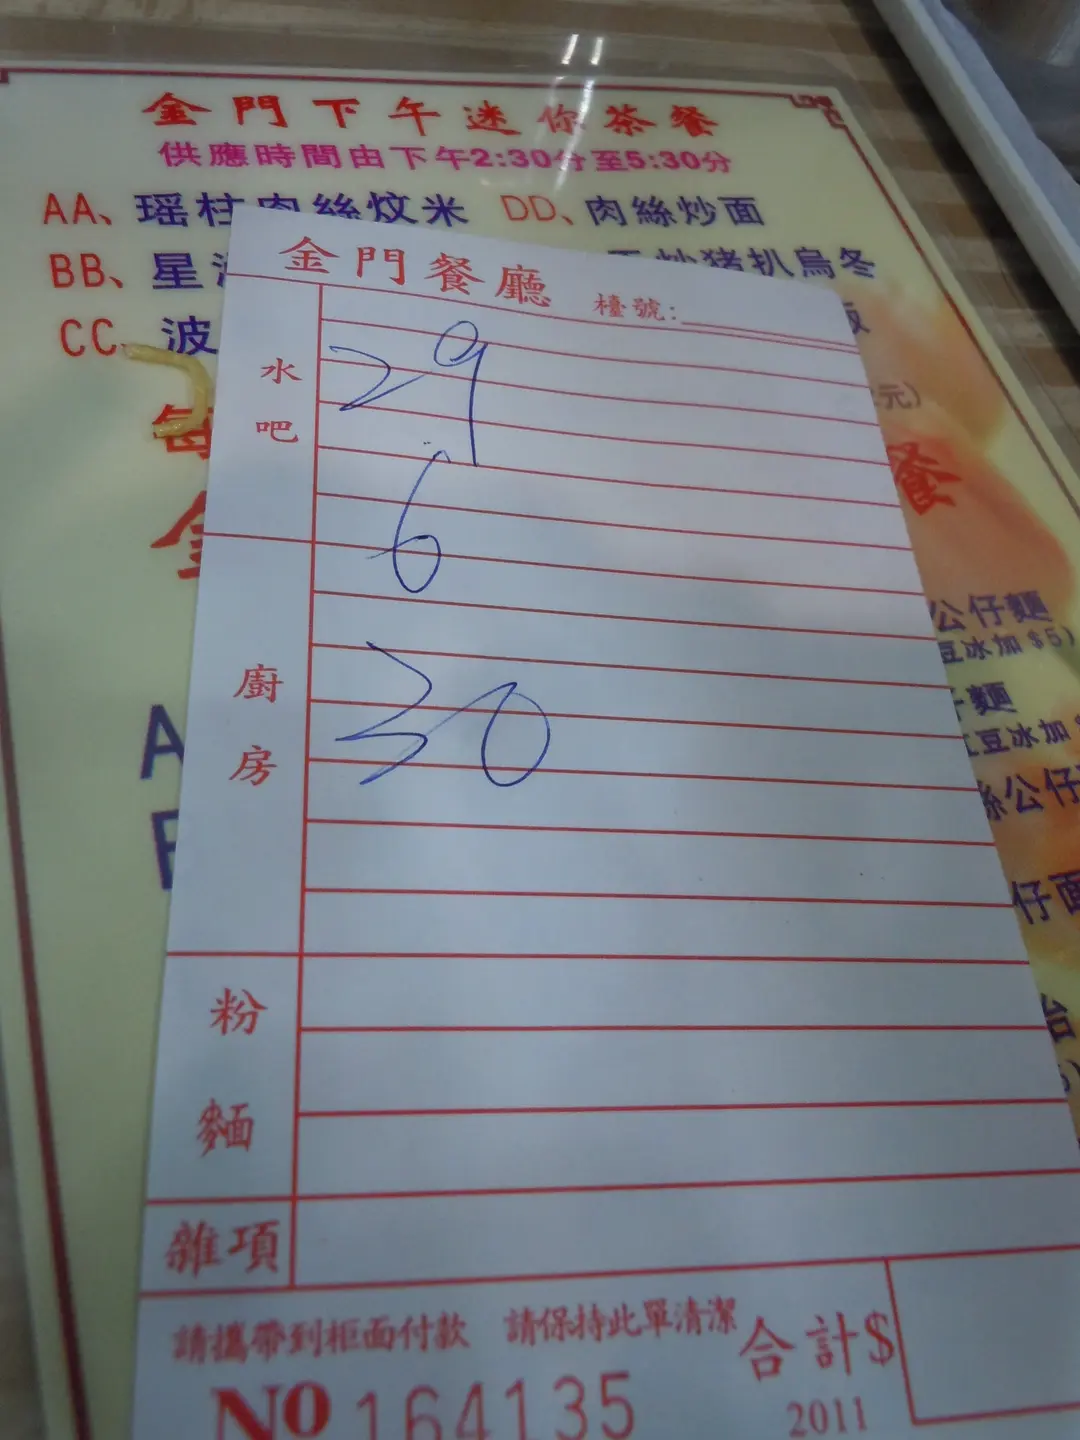 金門下午迷你茶餐
供應時間由下午2:30分至5:30分
AA、瑶柱肉絲炆米 DD、肉絲炒面
BB、星 炒猪扒烏冬
CC、波
元)
每
餐
金
公仔麵
豆冰加$5)
仔麵
豆冰加
A
絲公仔
仔面
金門餐廳 檯號:
水吧
29
6
廚房
30
粉麵
雜項
請攜帶到柜面付款 請保持此單清潔 合計$
NO 164135 2011